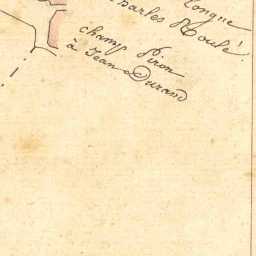 longue
Charles Houlé
champ Piron
à Jean Durand